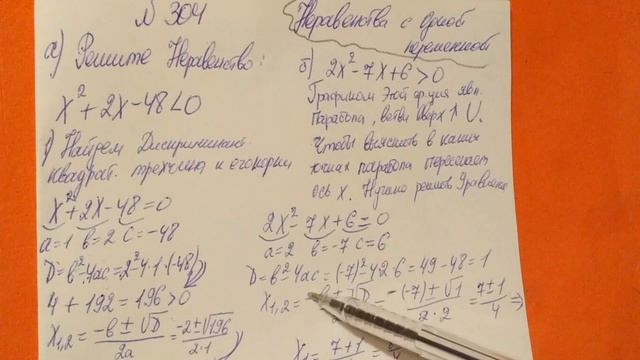 N 304
Неравенства с одной
переменной
а) Решите Неравенство:
x² + 2x - 48 < 0
1) Найдем Дискриминант
квадрат. трехчлена и его корни
x² + 2x - 48 = 0
a = 1 b = 2 c = -48
D = b² - 4ac = 2² - 4·1·(-48)
4 + 192 = 196 > 0
x₁,₂ = (-b ± √D)/2a = (-2 ± √196)/2·1
б) 2x² - 7x + 6 > 0
Графиком этой
Парабола, ветви вверх ↑ U.
Чтобы выяснить в каких
точках парабола пересекает
ось x. Нужно решить Уравнение
2x² - 7x + 6 = 0
a = 2 b = -7 c = 6
D = b² - 4ac = (-7)² - 4·2·6 = 49 - 48 = 1
x₁,₂ = (-b ± √D) = (-(-7) ± √1)/2·2 = (7 ± 1)/4 ⇒
x₁ = 7 + 1